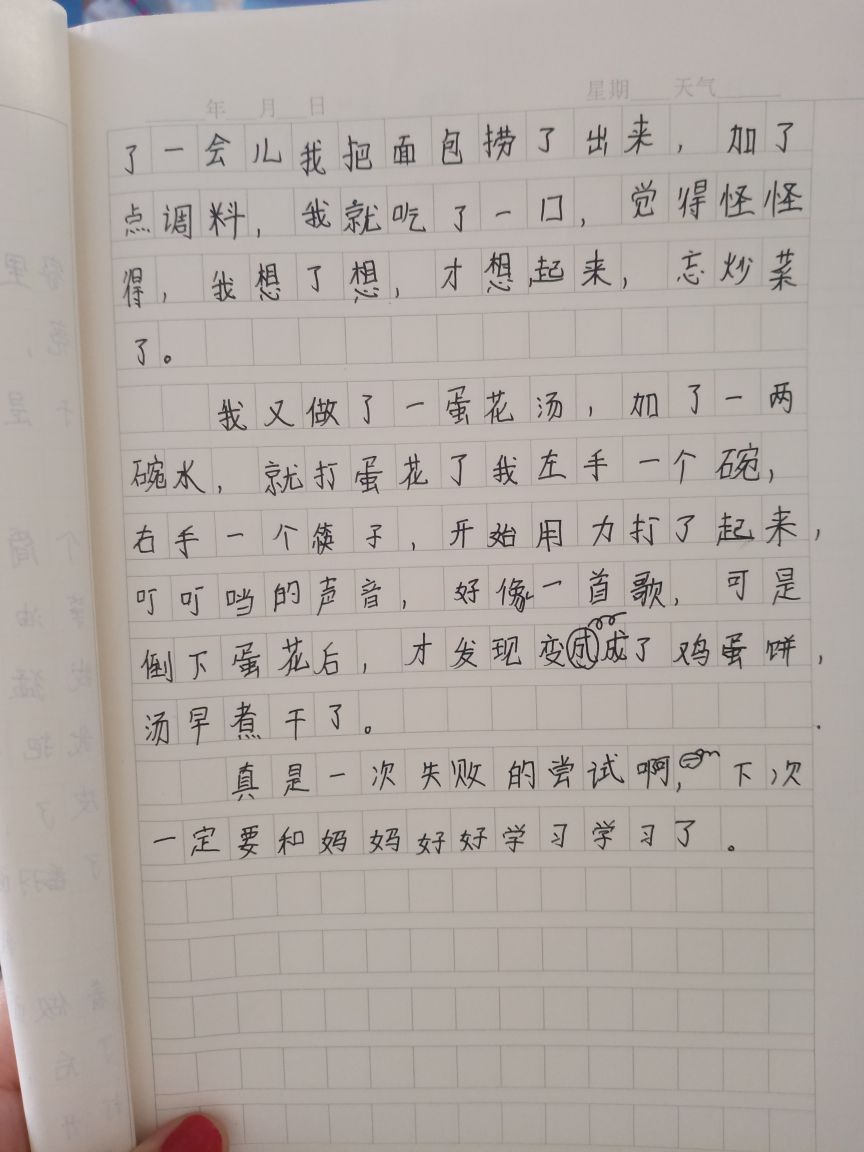 年 月 日 星期 天气
了一会儿我把面包捞了出来，加了
点调料，我就吃了一口，觉得怪怪
得，我想了想，才想起来，忘炒菜
了。
我又做了一蛋花汤，加了一两
碗水，就打蛋花了我左手一个碗，
右手一个筷子，开始用力打了起来，
叮叮当的声音，好像一首歌，可是
倒下蛋花后，才发现变成了鸡蛋饼，
汤早煮干了。
真是一次失败的尝试啊，下次
一定要和妈妈好好学习学习了。